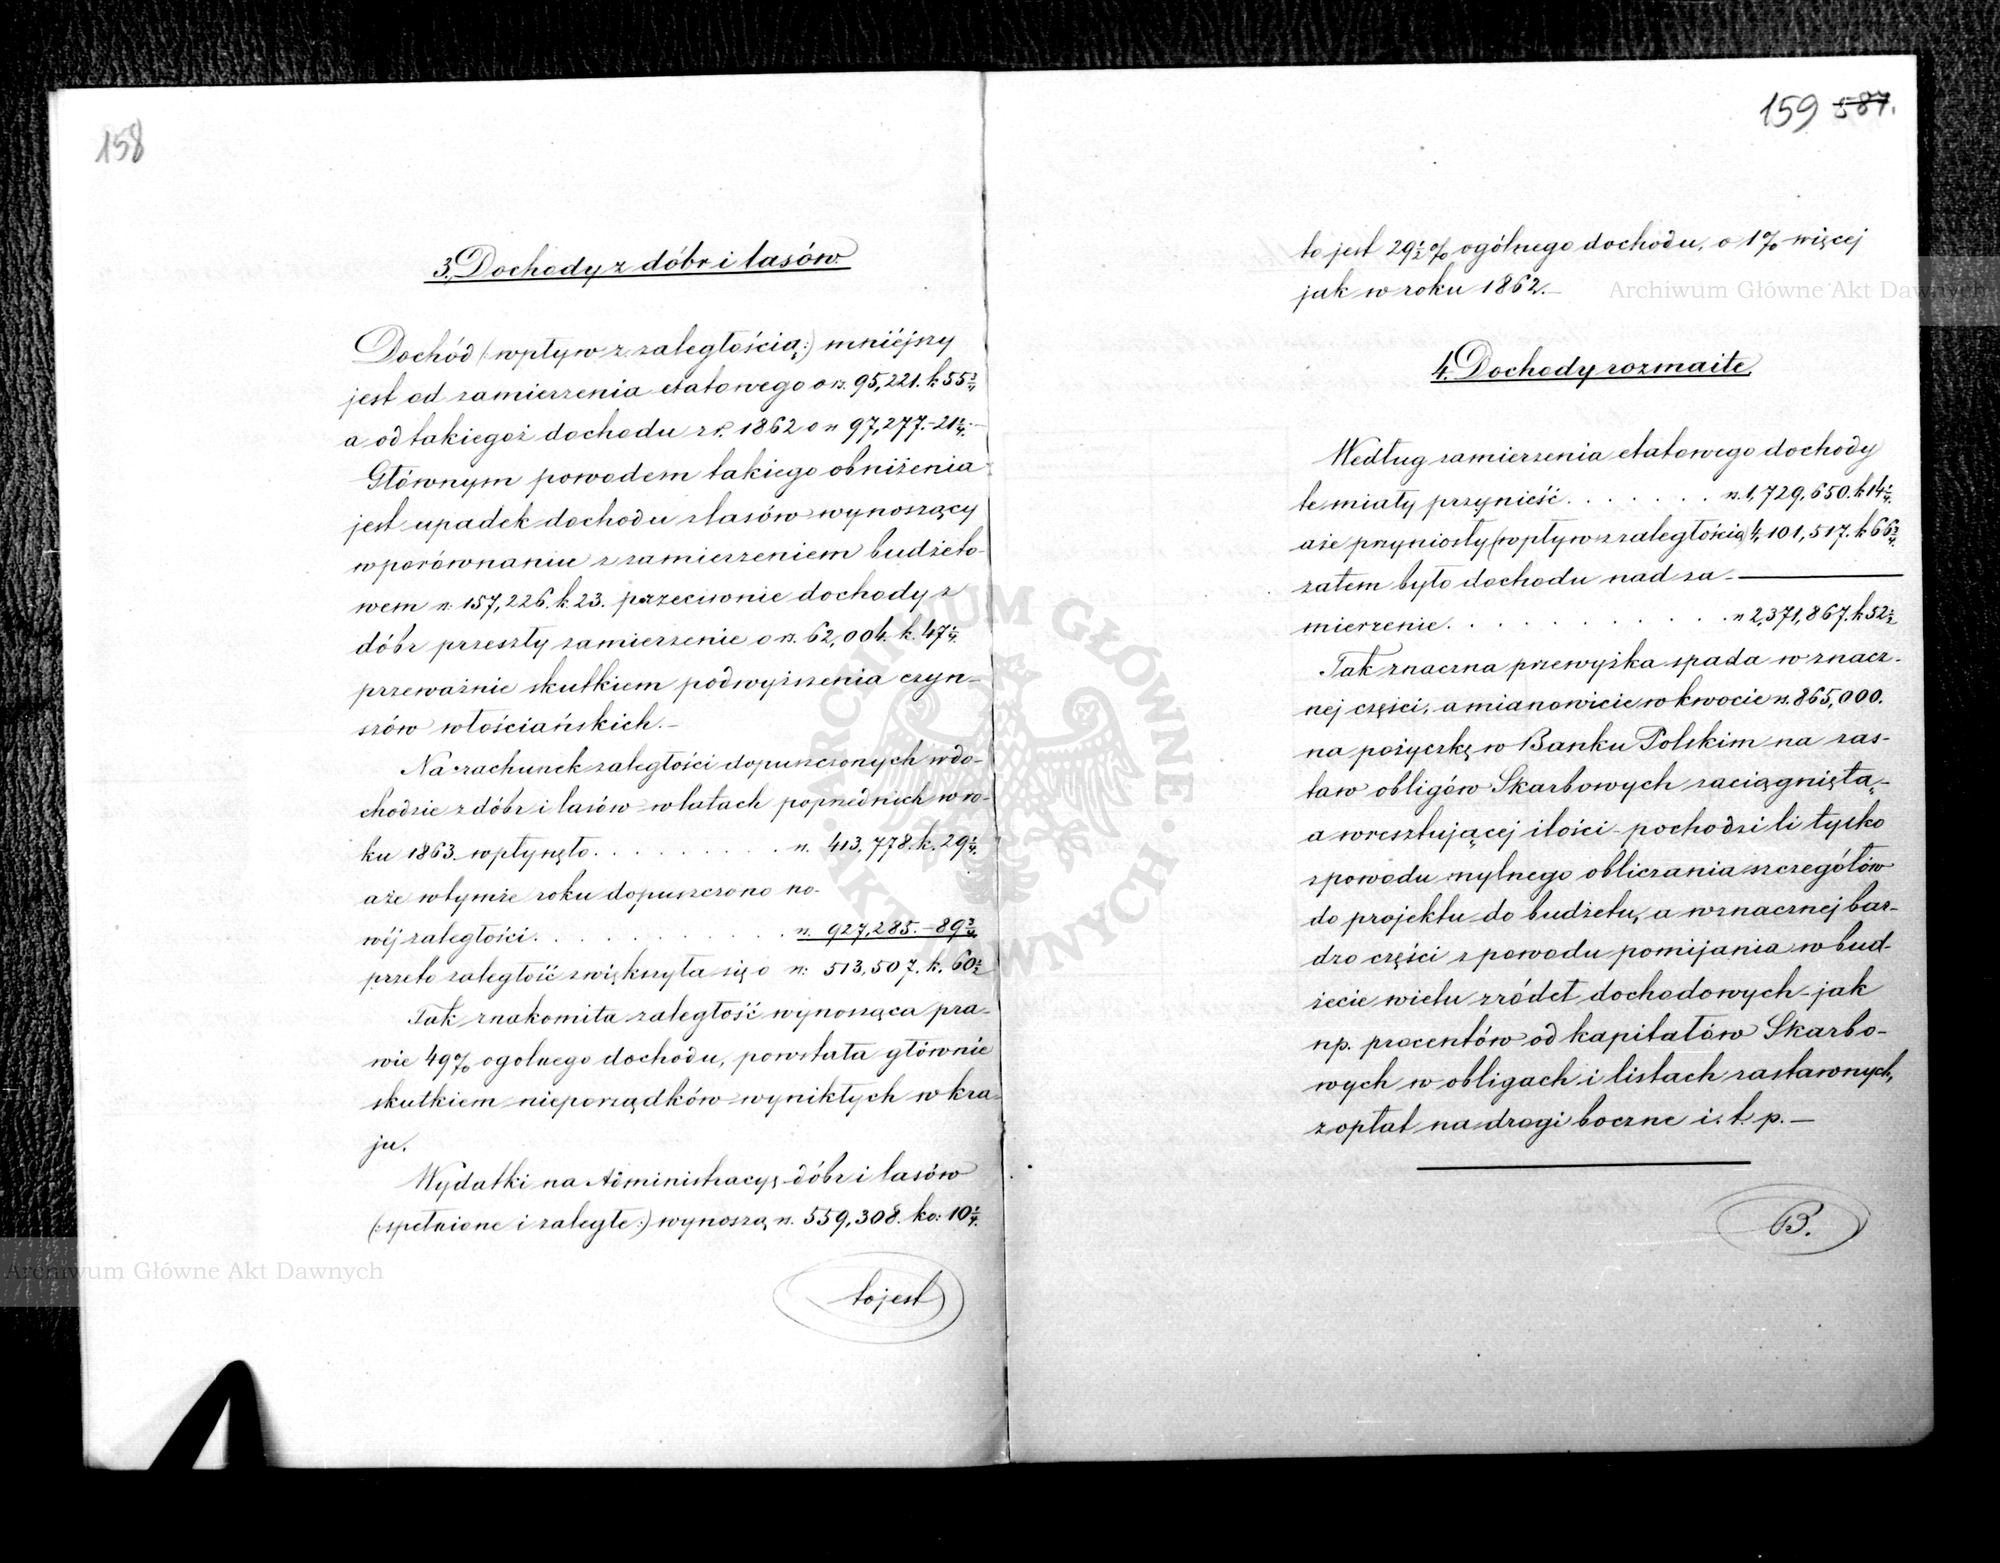 158
3. Dochody z dóbr i lasów.
Dochód (: wpływ z zaległością :) mniéjszy
jest od zamierzenia etatowego o rs. 95,221. k. 55 3/4
a od takiegoż dochodu z r. 1862 o rs 97,277.-21 1/4.-
Głównym powodem takiego obniżenia
jest upadek dochodu z lasów wynoszący
w porównaniu z zamierzeniem budżeto-
wem rs. 157,226. k. 23. przeciwnie dochody z
dóbr przeszły zamierzenie o rs. 62,004. k. 47 1/4.
przeważnie skutkiem podwyższenia czyn-
szów włościańskich.-
Na rachunek zaległości dopuszczonych w do-
chodzie z dóbr i lasów w latach poprzednich w ro-
ku 1863. wpłynęło . . . . . . . . . rs. 413,778. k. 29 1/4.
a że w tymże roku dopuszczono no-
wéj zaległości . . . . . . . . . . . . rs. 927,285.-89 3/4
przeto zaległość zwiększyła się o rs: 513,507. k. 60 1/2
Tak znakomita zaległość wynosząca pra-
wie 49% ogolnego dochodu, powstała głównie
skutkiem nieporządków wynikłych w kra-
ju.
Wydatki na Administracyę dóbr i lasów
(: spełnione i zaległe :) wynoszą rs. 559,308. ko: 10 1/4.
to jest
159 587.
to jest 29 1/2 % ogólnego dochodu, o 1% więcej
jak w roku 1862.-
4. Dochody rozmaite.
Według zamierzenia etatowego dochody
te miały przynieść . . . . . . . rs. 1,729,650. k. 14 1/4.
a że przyniosły (wpływ z zaległością) 4,101,517. k 66 3/4.
zatem było dochodu nad za-
mierzenie . . . . . . . . . . . . rs 2,371,867. k 52 1/2
Tak znaczna przewyżka spada w znacz-
nej części, a mianowicie w kwocie rs. 865,000.
na pożyczkę w Banku Polskim na zas-
taw obligów Skarbowych zaciągniętą,-
a w resztującej ilości pochodzi li tylko
z powodu mylnego obliczania szczegółów
do projektu do budżetu, a w znacznej bar-
dzo części z powodu pomijania w bud-
żecie wielu źródeł dochodowych jak
np. procentów od kapitałów Skarbo-
wych w obligach i listach zastawnych,
z opłat na drogi boczne i. t. p.-
B.
Archiwum Główne Akt Dawnych
Archiwum Główne Akt Dawnych
ARCHIWUM GŁÓWNE AKT DAWNYCH